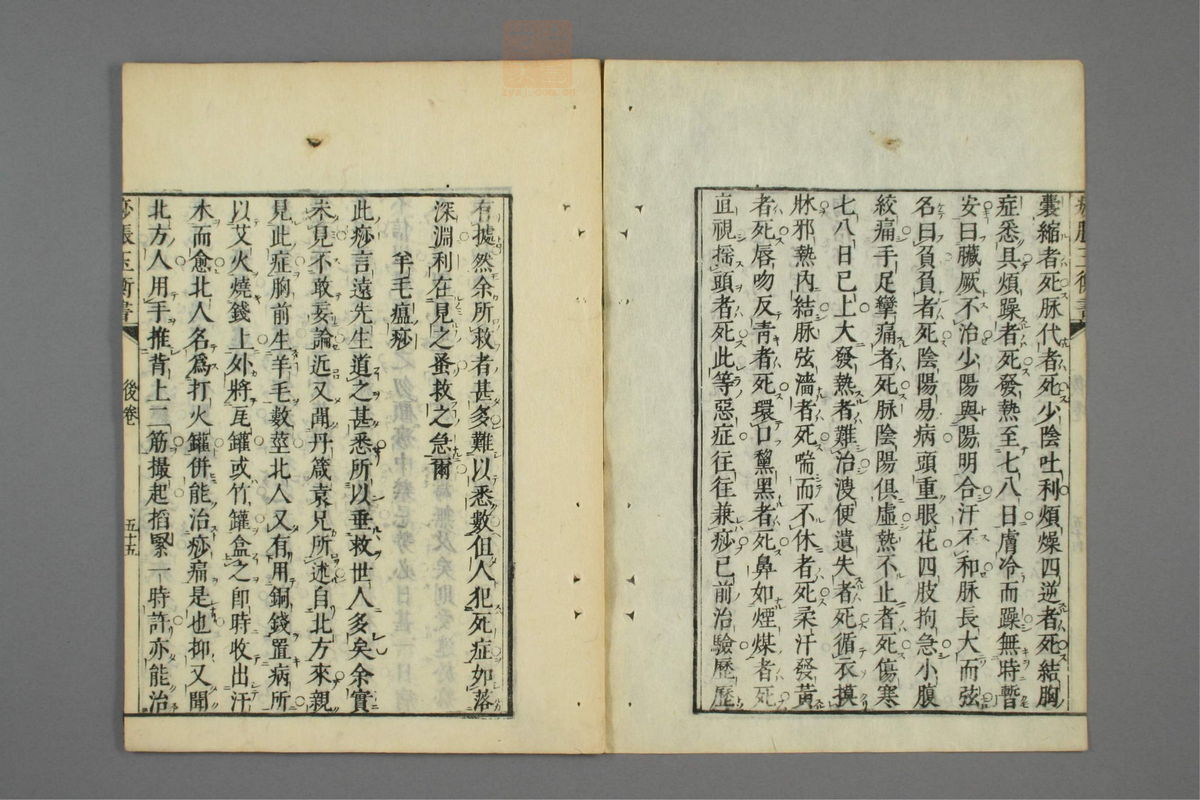 囊縮者死脉代者死少陰吐利煩燥四逆者死結胸
症悉具煩躁者死發熱至七八日膚冷而躁無時暫
安曰臟厥不治少陽與陽明合汗不和脉長大而弦
名曰負負者死陰陽易病頭重眼花四肢拘急小腹
絞痛手足攣痛者死脉陰陽俱虛熱不止者死傷寒
七八日已上大發熱者難治溲便遺失者死循衣摸
牀邪熱內結脉弦濇者死喘而不休者死柔汗發黃
者死唇吻反靑者死環口黧黑者死鼻如煙煤者死
直視揺頭者死此等惡症往往兼痧已前治驗歷歷
有據然余所救者甚多難以悉數但人犯死症如落
深淵利在見之蚤救之急爾
羊毛瘟痧
此痧言遠先生道之甚悉所以垂救世人多矣余實
未見不敢妄論近又聞丹箴袁兄所述自北方來親
見此症胸前生羊毛數莖北人又有用銅錢置病所
以艾火燒錢上外將瓦罐或竹罐盒之卽時收出汗
水而愈北人名爲打火罐併能治痧痛是也抑又聞
北方人用手推背上二筋撮起搯緊一時許亦能治
痧脹玉衡書
後卷
五十五